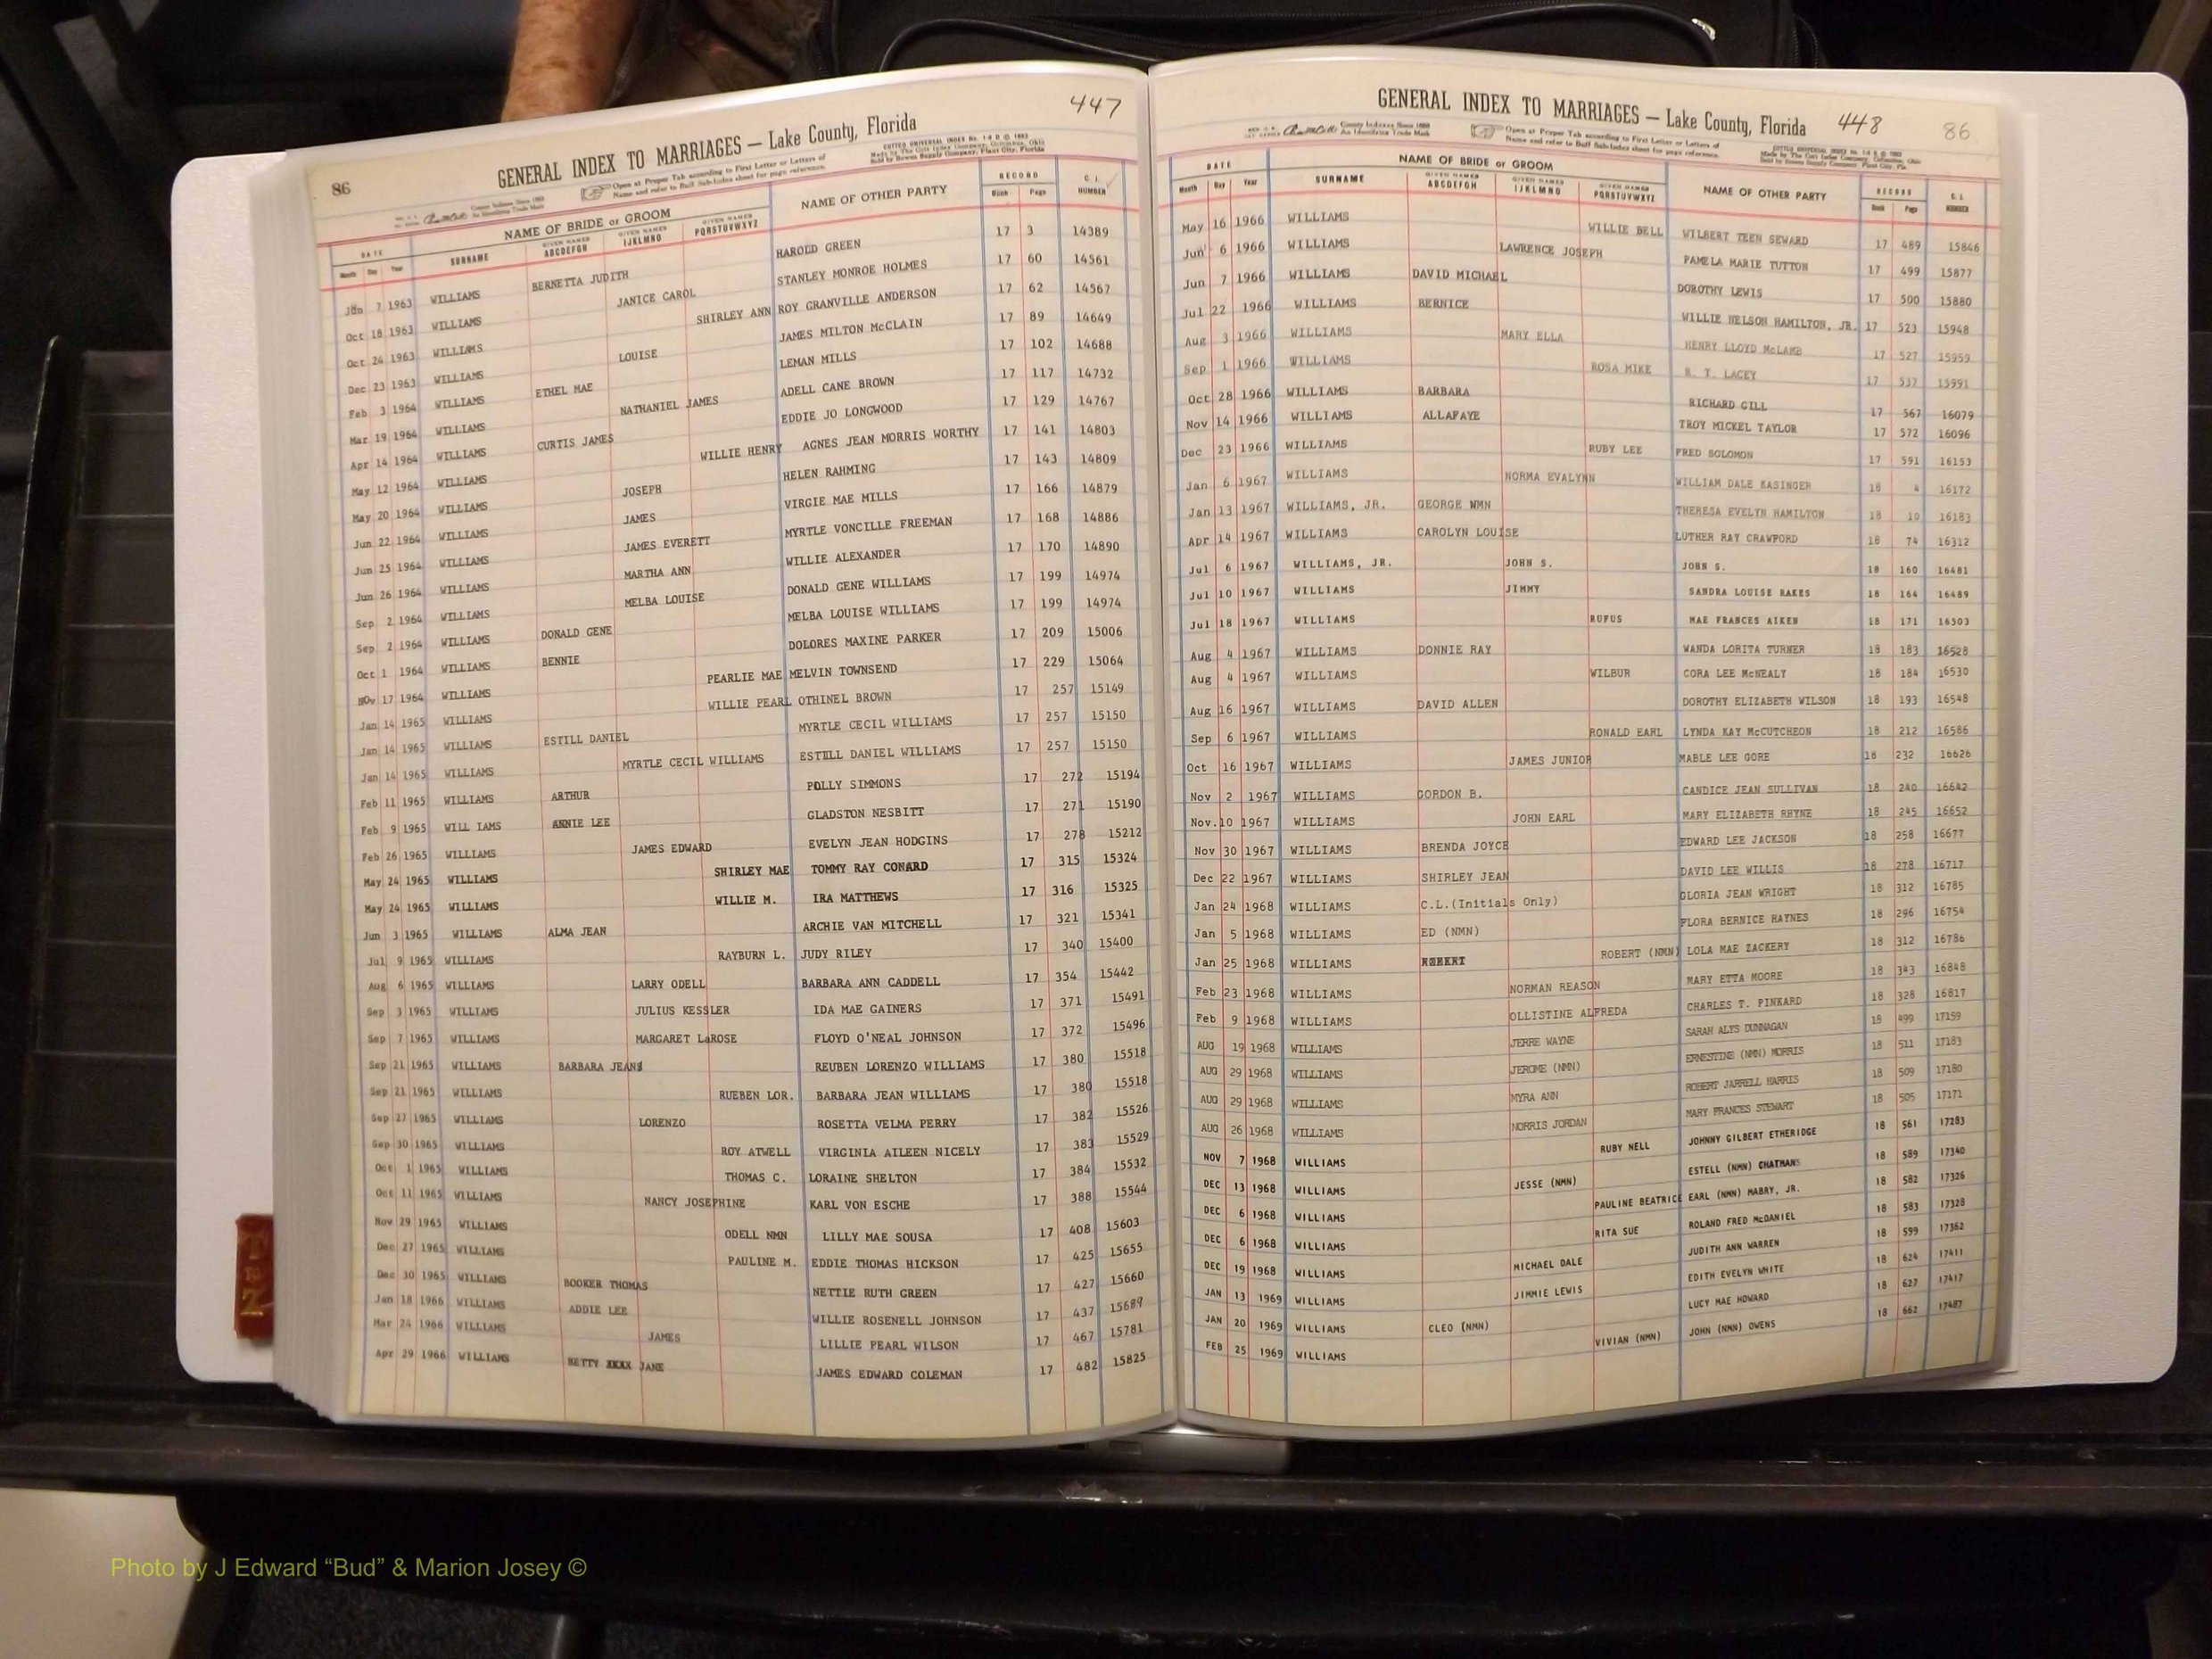 86
447
GENERAL INDEX TO MARRIAGES — Lake County, Florida
Open at Proper Tab according to First Letter or Letters of
Name and refer to Buff Sub-Index sheet for page reference.
DATE NAME OF BRIDE or GROOM NAME OF OTHER PARTY RECORD C. I. NUMBER
Month Day Year SURNAME GIVEN NAMES ABCDEFGH GIVEN NAMES IJKLMNO GIVEN NAMES PQRSTUVWXYZ Book Page
7 1963 WILLIAMS BERNETTA JUDITH HAROLD GREEN 17 3 14389
Oct 18 1963 WILLIAMS JANICE CAROL STANLEY MONROE HOLMES 17 60 14561
Oct 24 1963 WILLIAMS SHIRLEY ANN ROY GRANVILLE ANDERSON 17 62 14567
Dec 23 1963 WILLIAMS LOUISE JAMES MILTON McCLAIN 17 89 14649
Feb 3 1964 WILLIAMS ETHEL MAE LEMAN MILLS 17 102 14688
Mar 19 1964 WILLIAMS NATHANIEL JAMES ADELL CANE BROWN 17 117 14732
Apr 14 1964 WILLIAMS CURTIS JAMES EDDIE JO LONGWOOD 17 129 14767
May 12 1964 WILLIAMS WILLIE HENRY AGNES JEAN MORRIS WORTHY 17 141 14803
May 20 1964 WILLIAMS JOSEPH HELEN RAHMING 17 143 14809
Jun 22 1964 WILLIAMS JAMES VIRGIE MAE MILLS 17 166 14879
Jun 25 1964 WILLIAMS JAMES EVERETT MYRTLE VONCILLE FREEMAN 17 168 14886
Jun 26 1964 WILLIAMS MARTHA ANN WILLIE ALEXANDER 17 170 14890
Sep 2 1964 WILLIAMS MELBA LOUISE DONALD GENE WILLIAMS 17 199 14974
Sep 2 1964 WILLIAMS DONALD GENE MELBA LOUISE WILLIAMS 17 199 14974
Oct 1 1964 WILLIAMS BENNIE DOLORES MAXINE PARKER 17 209 15006
Nov 17 1964 WILLIAMS PEARLIE MAE MELVIN TOWNSEND 17 229 15064
Jan 14 1965 WILLIAMS WILLIE PEARL OTHINEL BROWN 17 257 15149
Jan 14 1965 WILLIAMS ESTILL DANIEL MYRTLE CECIL WILLIAMS 17 257 15150
Jan 14 1965 WILLIAMS MYRTLE CECIL WILLIAMS ESTILL DANIEL WILLIAMS 17 257 15150
Feb 11 1965 WILLIAMS ARTHUR POLLY SIMMONS 17 272 15194
Feb 9 1965 WILL IAMS ANNIE LEE GLADSTON NESBITT 17 271 15190
Feb 26 1965 WILLIAMS JAMES EDWARD EVELYN JEAN HODGINS 17 278 15212
May 24 1965 WILLIAMS SHIRLEY MAE TOMMY RAY CONARD 17 315 15324
May 24 1965 WILLIAMS WILLIE M. IRA MATTHEWS 17 316 15325
Jun 3 1965 WILLIAMS ALMA JEAN ARCHIE VAN MITCHELL 17 321 15341
Jul 9 1965 WILLIAMS RAYBURN L. JUDY RILEY 17 340 15400
Aug 6 1965 WILLIAMS LARRY ODELL BARBARA ANN CADDELL 17 354 15442
Sep 3 1965 WILLIAMS JULIUS KESSLER IDA MAE GAINERS 17 371 15491
Sep 7 1965 WILLIAMS MARGARET LaROSE FLOYD O'NEAL JOHNSON 17 372 15496
Sep 21 1965 WILLIAMS BARBARA JEANS REUBEN LORENZO WILLIAMS 17 380 15518
Sep 21 1965 WILLIAMS RUEBEN LOR. BARBARA JEAN WILLIAMS 17 380 15518
Sep 27 1965 WILLIAMS LORENZO ROSETTA VELMA PERRY 17 382 15526
Sep 30 1965 WILLIAMS ROY ATWELL VIRGINIA AILEEN NICELY 17 383 15529
Oct 1 1965 WILLIAMS THOMAS C. LORAINE SHELTON 17 384 15532
Oct 11 1965 WILLIAMS NANCY JOSEPHINE KARL VON ESCHE 17 388 15544
Nov 29 1965 WILLIAMS ODELL NMN LILLY MAE SOUSA 17 408 15603
Dec 27 1965 WILLIAMS PAULINE M. EDDIE THOMAS HICKSON 17 425 15655
Dec 30 1965 WILLIAMS BOOKER THOMAS NETTIE RUTH GREEN 17 427 15660
Jan 18 1966 WILLIAMS ADDIE LEE WILLIE ROSENELL JOHNSON 17 437 15689
Mar 24 1966 WILLIAMS JAMES LILLIE PEARL WILSON 17 467 15781
Apr 29 1966 WILLIAMS BETTY XXXX JANE JAMES EDWARD COLEMAN 17 482 15825
GENERAL INDEX TO MARRIAGES — Lake County, Florida 448 86
Open at Proper Tab according to First Letter or Letters of
Name and refer to Buff Sub-Index sheet for page reference.
DATE NAME OF BRIDE or GROOM NAME OF OTHER PARTY RECORD C. I. NUMBER
Month Day Year SURNAME GIVEN NAMES ABCDEFGH GIVEN NAMES IJKLMNO GIVEN NAMES PQRSTUVWXYZ Book Page
May 16 1966 WILLIAMS WILLIE BELL WILBERT TEEN SEWARD 17 489 15846
Jun 6 1966 WILLIAMS LAWRENCE JOSEPH PAMELA MARIE TUTTON 17 499 15877
Jun 7 1966 WILLIAMS DAVID MICHAEL DOROTHY LEWIS 17 500 15880
Jul 22 1966 WILLIAMS BERNICE WILLIE NELSON HAMILTON, JR. 17 523 15948
Aug 3 1966 WILLIAMS MARY ELLA HENRY LLOYD McLAMB 17 527 15959
Sep 1 1966 WILLIAMS ROSA MIKE R. T. LACEY 17 537 15991
Oct 28 1966 WILLIAMS BARBARA RICHARD GILL 17 567 16079
Nov 14 1966 WILLIAMS ALLAFAYE TROY MICKEL TAYLOR 17 572 16096
Dec 23 1966 WILLIAMS RUBY LEE FRED SOLOMON 17 591 16153
Jan 6 1967 WILLIAMS NORMA EVALYNN WILLIAM DALE KASINGER 18 4 16172
Jan 13 1967 WILLIAMS, JR. GEORGE WMN THERESA EVELYN HAMILTON 18 10 16183
Apr 14 1967 WILLIAMS CAROLYN LOUISE LUTHER RAY CRAWFORD 18 74 16312
Jul 6 1967 WILLIAMS, JR. JOHN S. JOHN S. 18 160 16481
Jul 10 1967 WILLIAMS JIMMY SANDRA LOUISE RAKES 18 164 16489
Jul 18 1967 WILLIAMS RUFUS MAE FRANCES AIKEN 18 171 16503
Aug 4 1967 WILLIAMS DONNIE RAY WANDA LORITA TURNER 18 183 16528
Aug 4 1967 WILLIAMS WILBUR CORA LEE McNEALY 18 184 16530
Aug 16 1967 WILLIAMS DAVID ALLEN DOROTHY ELIZABETH WILSON 18 193 16548
Sep 6 1967 WILLIAMS RONALD EARL LYNDA KAY McCUTCHEON 18 212 16586
Oct 16 1967 WILLIAMS JAMES JUNIOR MABLE LEE GORE 18 232 16626
Nov 2 1967 WILLIAMS GORDON B. CANDICE JEAN SULLIVAN 18 240 16642
Nov. 10 1967 WILLIAMS JOHN EARL MARY ELIZABETH RHYNE 18 245 16652
Nov 30 1967 WILLIAMS BRENDA JOYCE EDWARD LEE JACKSON 18 258 16677
Dec 22 1967 WILLIAMS SHIRLEY JEAN DAVID LEE WILLIS 18 278 16717
Jan 24 1968 WILLIAMS C.L.(Initials Only) GLORIA JEAN WRIGHT 18 312 16785
Jan 5 1968 WILLIAMS ED (NMN) FLORA BERNICE HAYNES 18 296 16754
Jan 25 1968 WILLIAMS ROBERT ROBERT (NMN) LOLA MAE ZACKERY 18 312 16786
Feb 23 1968 WILLIAMS NORMAN REASON MARY ETTA MOORE 18 343 16848
Feb 9 1968 WILLIAMS OLLISTINE ALFREDA CHARLES T. PINKARD 18 328 16817
AUG 19 1968 WILLIAMS JERRE WAYNE SARAH ALYS DUNNAGAN 18 499 17159
AUG 29 1968 WILLIAMS JEROME (NMN) ERNESTINE (NMN) MORRIS 18 511 17183
AUG 29 1968 WILLIAMS MYRA ANN ROBERT JARRELL HARRIS 18 509 17180
AUG 26 1968 WILLIAMS NORRIS JORDAN MARY FRANCES STEWART 18 505 17171
NOV 7 1968 WILLIAMS RUBY NELL JOHNNY GILBERT ETHERIDGE 18 561 17283
DEC 13 1968 WILLIAMS JESSE (NMN) ESTELL (NMN) CHATMAN 18 589 17340
DEC 6 1968 WILLIAMS PAULINE BEATRICE EARL (NMN) MABRY, JR. 18 582 17326
DEC 6 1968 WILLIAMS RITA SUE ROLAND FRED McDANIEL 18 583 17328
DEC 19 1968 WILLIAMS MICHAEL DALE JUDITH ANN WARREN 18 599 17362
JAN 13 1969 WILLIAMS JIMMIE LEWIS EDITH EVELYN WHITE 18 624 17411
JAN 20 1969 WILLIAMS CLEO (NMN) LUCY MAE HOWARD 18 627 17417
FEB 25 1969 WILLIAMS VIVIAN (NMN) JOHN (NMN) OWENS 18 662 17487
T TO Z
Photo by J Edward “Bud” & Marion Josey ©